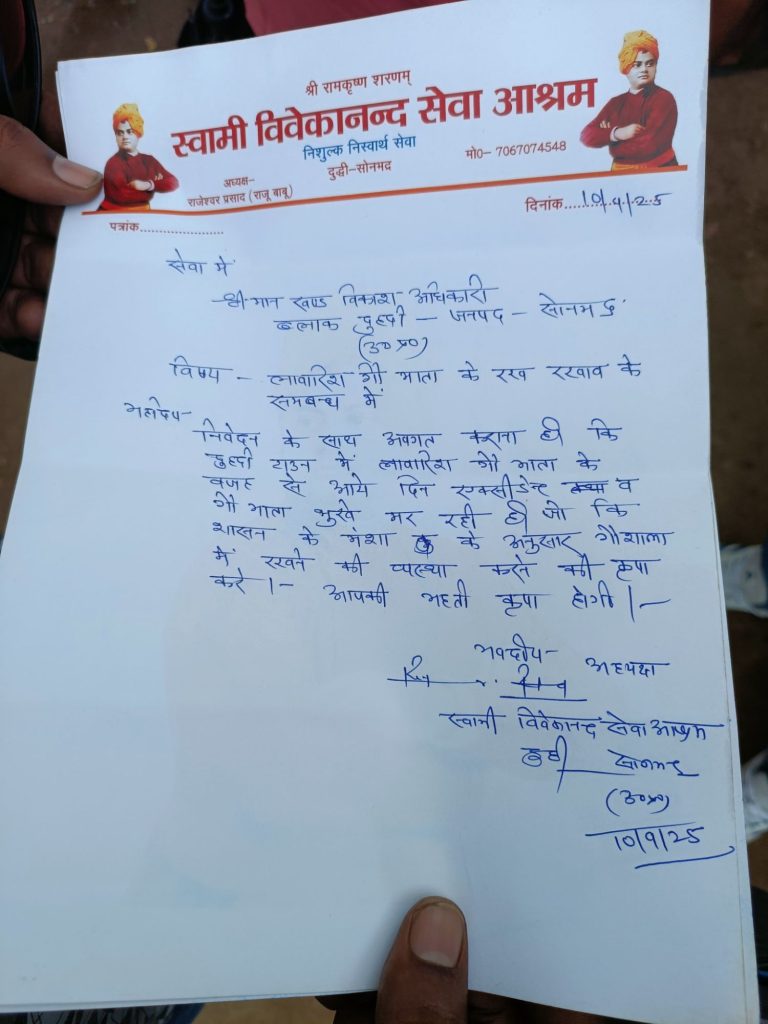 श्री रामकृष्ण शरणम्
स्वामी विवेकानन्द सेवा आश्रम
निशुल्क निस्वार्थ सेवा
दुद्धी-सोनभद्र
मो0- 7067074548
अध्यक्ष-
राजेश्वर प्रसाद (राजू बाबू)
पत्रांक.....................
दिनांक.....10/9/25
सेवा में
श्री मान खण्ड विकाश अधिकारी
ब्लाक दुद्धी - जनपद - सोनभद्र
(उ०प्र०)
विषय - लावारिश गौ माता के रख रखाव के
समबन्ध में
महोदय-
निवेदन के साथ अवगत कराना है कि
दुद्धी टाउन में लावारिश गौ माता के
वजह से आये दिन एक्सीडेन्ट व
गौ माता भुखे मर रही है जो कि
शासन के मंशा के अनुसार गौशाला
में रखने की व्यस्था करने की कृपा
करे ।- आपकी महती कृपा होगी ।-
भवदीय-
अध्यक्ष
स्वामी विवेकानन्द सेवा आश्रम
दुद्धी सोनभद्र
(उ०प्र०)
10/9/25